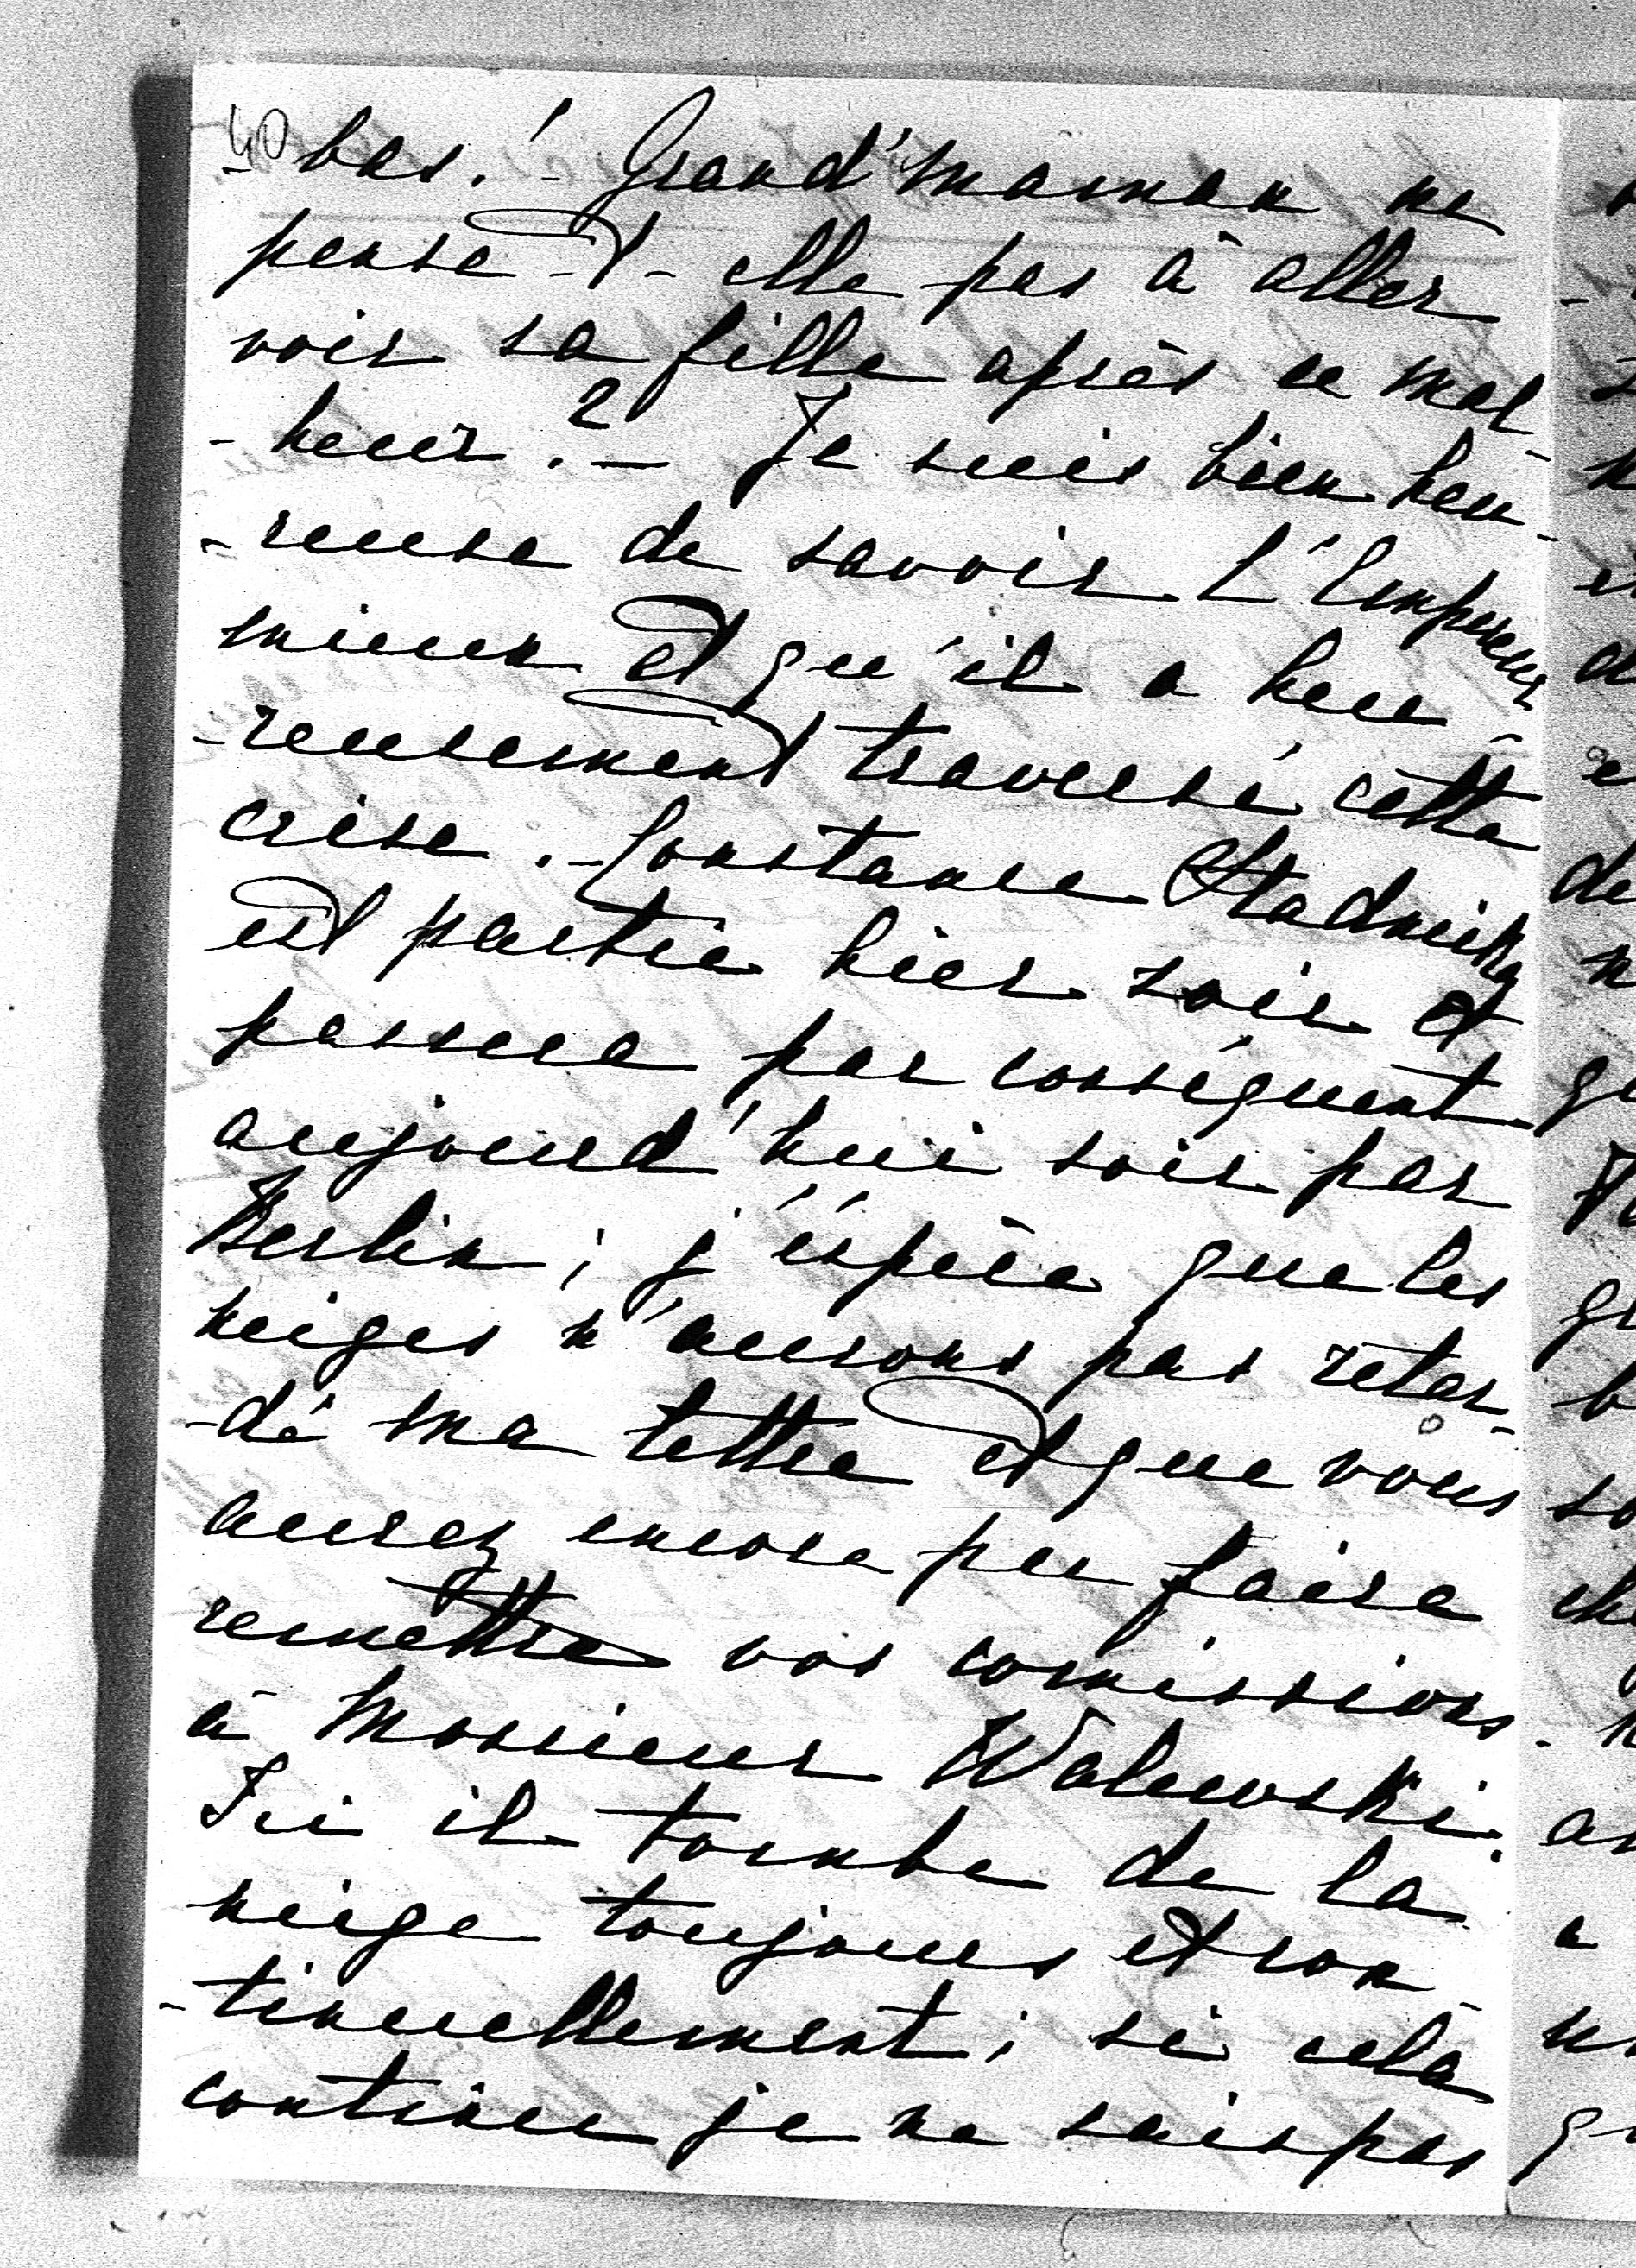 40
-bas! - Grand'maman ne
pense-t-elle pas à aller
voir sa fille après ce mal-
-heur? - Je suis bien heu-
-reuse de savoir l'Empereur
mieux et qu'il a heu-
-reusement traversé cette
crise. - Constance Stadnicka
est partie hier soir et
passera par conséquent
aujourd'hui soir par
Berlin; j'éspère que les
neiges n'aurons pas retar-
-dé ma lettre et que vous
aurez encore pu faire
remettre vos comissions
à Monsieur Walewski.
Ici il tombe de la
neige toujours et con-
-tinuellement; si cela
continue je ne sais pas